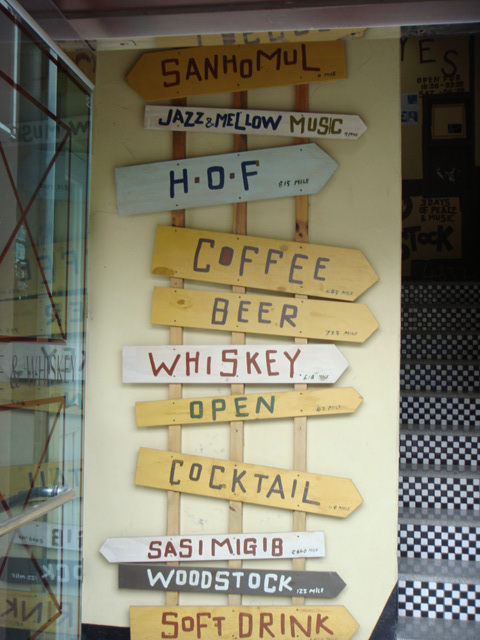 SANHOMUL
JAZZ & MELLOW MUSIC
H·O·F 815 MILE
COFFEE
BEER
WHISKEY
OPEN
COCKTAIL
SASIMIGIB
WOODSTOCK 122 MILE
SOFT DRINK
YES
OPEN
3 DAYS
OF PEACE
& MUSIC